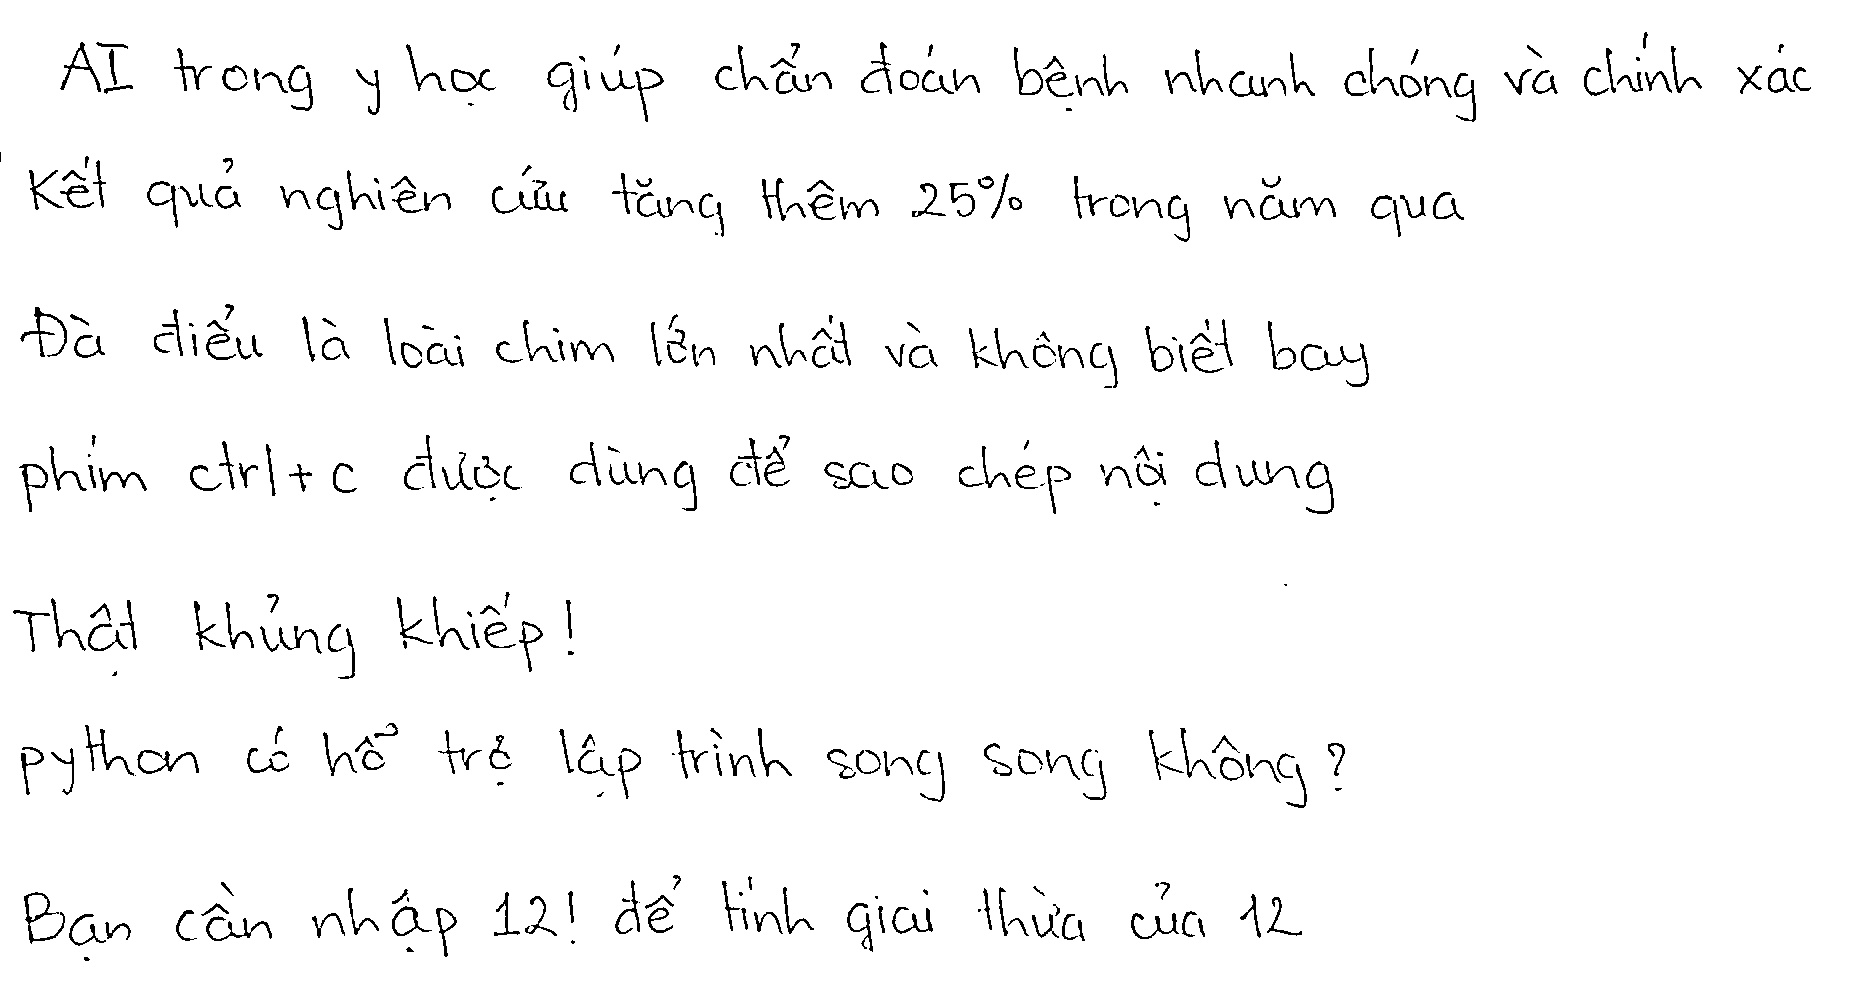 AI trong y học giúp chẩn đoán bệnh nhanh chóng và chính xác
Kết quả nghiên cứu tăng thêm 25% trong năm qua
Đà điểu là loài chim lớn nhất và không biết bay
phím ctrl+c được dùng để sao chép nội dung
Thật khủng khiếp!
python có hỗ trợ lập trình song song không?
Bạn cần nhập 12! để tính giai thừa của 12